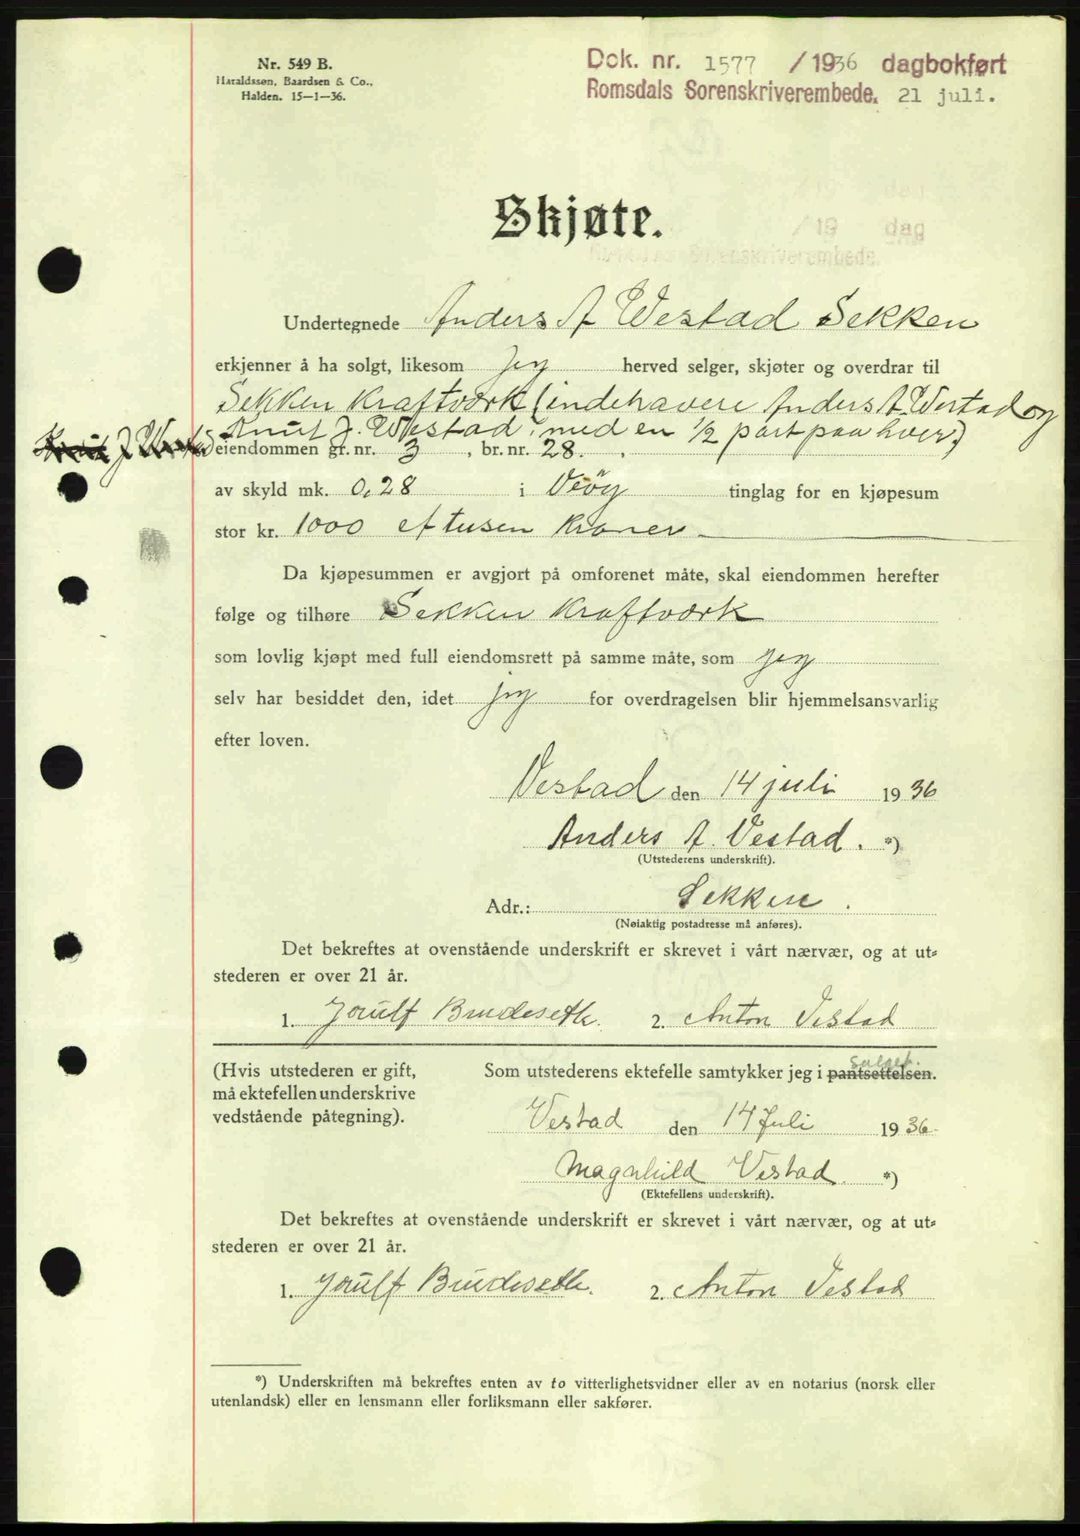 Nr. 549 B.
Haraldssen, Baardsen & Co.,
Halden. 15—1—36.
Dok. nr. 1577 / 1936 dagbokført
Romsdals Sorenskriverembede. 21 juli.
/19 dag
Sorenskriverembede.
Skjøte.
Undertegnede Anders A Westad Sekken
erkjenner å ha solgt, likesom jeg herved selger, skjøter og overdrar til
Sekken Kraftværk (indehavere Anders A. Westad og
Knut J. Westad med en 1/2 part paa hver)
Knut J Westad eiendommen gr. nr. 3, br. nr. 28.
av skyld mk. 0,28 i Veöy tinglag for en kjøpesum
stor kr. 1000 ettusen kroner
Da kjøpesummen er avgjort på omforenet måte, skal eiendommen herefter
følge og tilhøre Sekken Kraftværk
som lovlig kjøpt med full eiendomsrett på samme måte, som jeg
selv har besiddet den, idet jeg for overdragelsen blir hjemmelsansvarlig
efter loven.
Vestad den 14 juli 1936
Anders A. Vestad. *)
(Utstederens underskrift).
Adr.: Sekken.
(Nøiaktig postadresse må anføres).
Det bekreftes at ovenstående underskrift er skrevet i vårt nærvær, og at ut-
stederen er over 21 år.
1. Brudeseth. 2. Anton Vestad
(Hvis utstederen er gift, Som utstederens ektefelle samtykker jeg i pantsettelsen. salget.
må ektefellen underskrive
vedstående påtegning).
Vestad den 14 Juli 1936
Magnhild Vestad. *)
(Ektefellens underskrift).
Det bekreftes at ovenstående underskrift er skrevet i vårt nærvær, og at ut-
stederen er over 21 år.
1. Brudeseth. 2. Anton Vestad
*) Underskriften må bekreftes enten av to vitterlighetsvidner eller av en notarius (norsk eller
utenlandsk) eller en lensmann eller forliksmann eller sakfører.